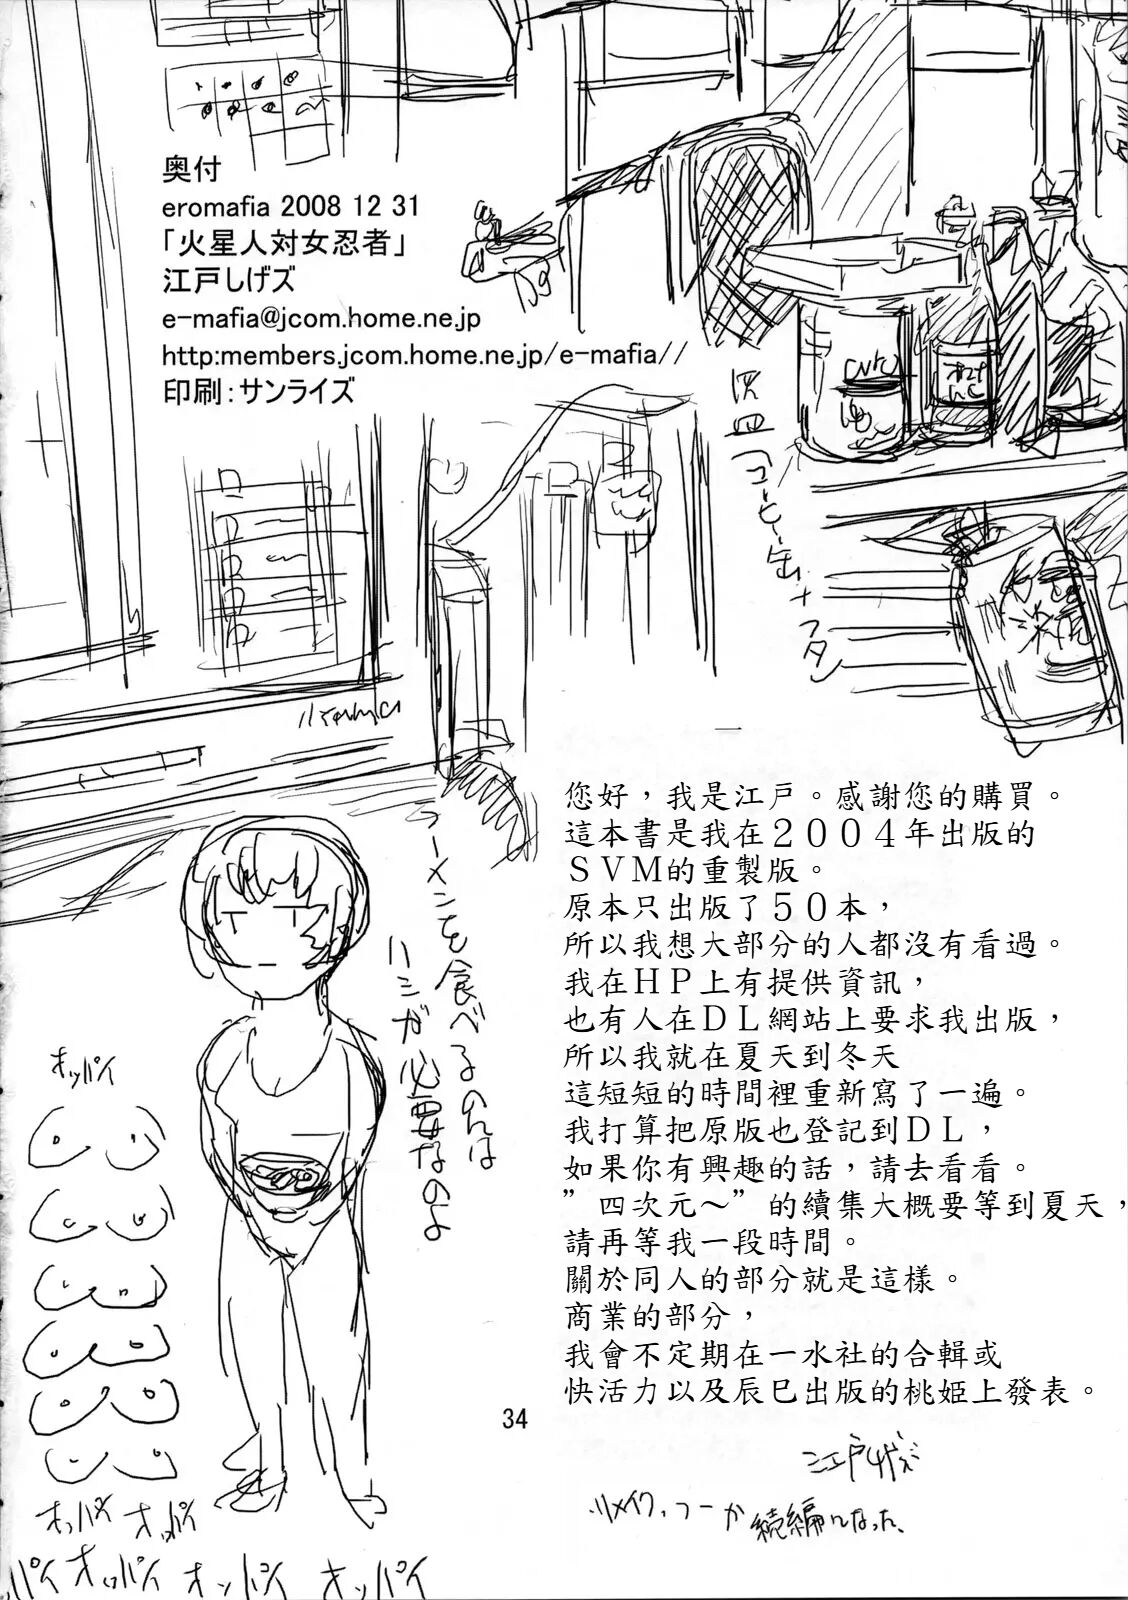 奥付
eromafia 2008 12 31
「火星人対女忍者」
江戸しげズ
e-mafia@jcom.home.ne.jp
http:members.jcom.home.ne.jp/e-mafia//
印刷：サンライズ
灰皿
コーヒー缶+フタ
您好，我是江戸。感謝您的購買。
這本書是我在２００４年出版的
ＳＶＭ的重製版。
原本只出版了５０本，
所以我想大部分的人都沒有看過。
我在ＨＰ上有提供資訊，
也有人在ＤＬ網站上要求我出版，
所以我就在夏天到冬天
這短短的時間裡重新寫了一遍。
我打算把原版也登記到ＤＬ，
如果你有興趣的話，請去看看。
”四次元～”的續集大概要等到夏天，
請再等我一段時間。
關於同人的部分就是這樣。
商業的部分，
我會不定期在一水社的合輯或
快活力以及辰巳出版的桃姫上發表。
江戸しげズ
リメイク、つーか続編になった、
ラーメンを食べるのには
ハシが必要なのよ
オッパイ
オッパイ オッパイ
ッパイ オッパイ オッパイ オッパイ
34